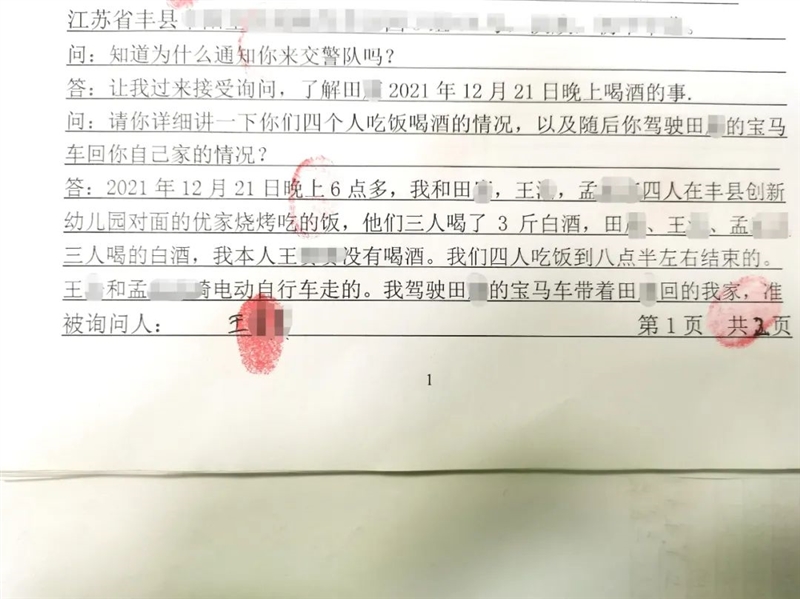 江苏省丰县
问：知道为什么通知你来交警队吗？
答：让我过来接受询问，了解田 2021 年 12 月 21 日晚上喝酒的事.
问：请你详细讲一下你们四个人吃饭喝酒的情况，以及随后你驾驶田 的宝马
车回你自己家的情况？
答：2021 年 12 月 21 日晚上 6 点多，我和田 ，王 ，孟 四人在丰县创新
幼儿园对面的优家烧烤吃的饭，他们三人喝了 3 斤白酒，田 、王 、孟
三人喝的白酒，我本人王 没有喝酒。我们四人吃饭到八点半左右结束的。
王 和孟 骑电动自行车走的。我驾驶田 的宝马车带着田 回的我家，准
被询问人： 王 第 1 页 共 2 页
1